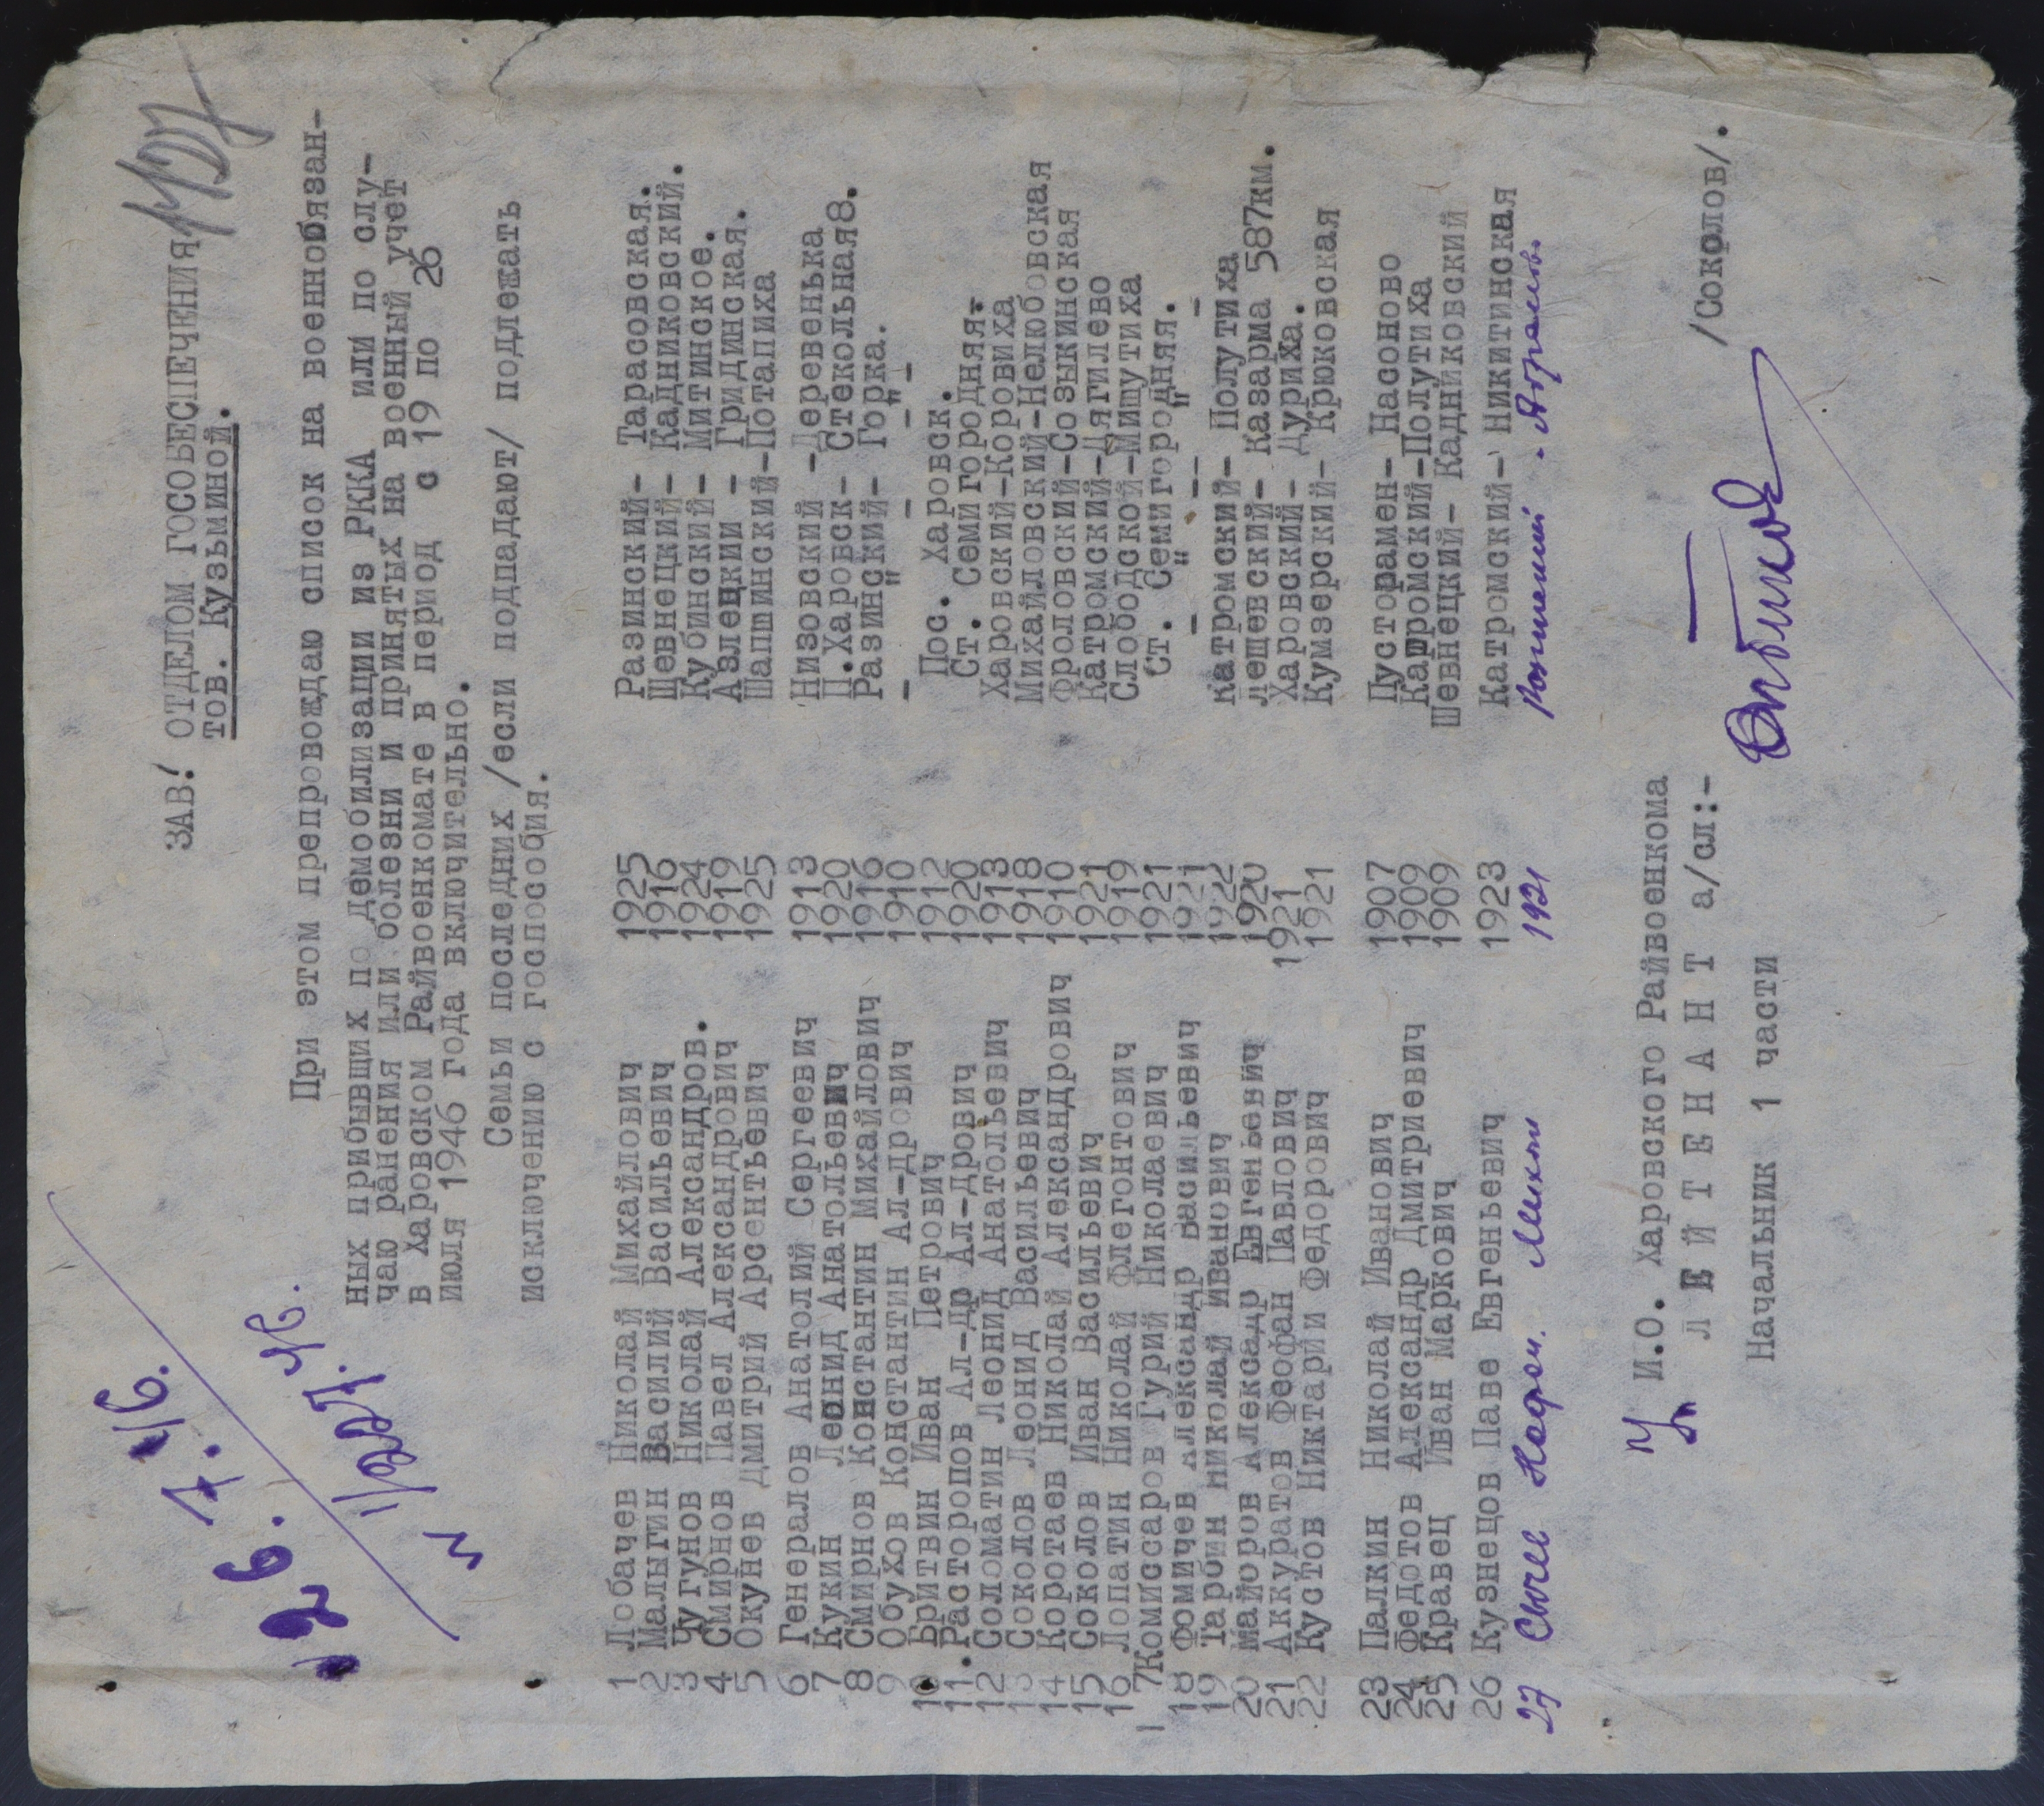 127
26. 7. 46.
1/227. 46.
ЗАВ! ОТДЕЛОМ ГОСОБЕСПЕЧЕНИЯ
тов. Кузьминой.
При этом препровождаю список на военнобязан-
ных прибывших по демобилизации из РККА или по слу-
чаю ранения или болезни и принятых на военный учет
в Харовском Райвоенкомате в период с 19 по 26
июля 1946 года включительно.
Семьи последних /если подпадают/ подлежать
исключению с госпособия.
1 Лобачев Николай Михайлович 1925 Разинский- Тарасовская.
2 Малыгин Василий Васильевич 1916 Шевнецкий- Кадниковский.
3 Чугунов Николай Александров. 1924 Кубинский- Митинское.
4 Смирнов Павел Александрович 1919 Азлецкии - Гридинская.
5 Окунев Дмитрий Арсентьевич 1925 Шапшинский-Потапиха
6 Генералов Анатолий Сергеевич 1913 Низовский -Деревенька
7 Кукин Леонид Анатольевич 1920 П.Харовск- Стекольная8.
8 Смирнов Константин Михайлович 1916 Разинский- Горка.
9 Обухов Константин Ал-дрович 1910 - " - - " -
10 Бритвин Иван Петрович 1912 Пос. Харовск.
11.Расторопов Ал-др Ал-дрович 1920 Ст. Семигородняя.
12 Соломатин Леонид Анатольевич 1913 Харовский-Коровиха
13 Соколов Леонид Васильевич 1918 Михайловский-Нелюбовская
14 Коротаев Николай Александрович 1910 Фроловский-Созыкинская
15 Соколов Иван Васильевич 1921 Катромский-Дягилево
16 Лопатин Николай Флегонтович 1919 Слободской-Мишутиха
17Комиссаров Гурий Николаевич 1921 Ст. Семигородняя.
18 Фомичев Александр Васильевич 1921 - " -- " -
19 Тарбин Николай Иванович 1922 Катромский- Полутиха
20 Майоров Алексадр Евгеньевич 1920 Лещевский- Казарма 587км.
21 Аккуратов Феофан Павлович 1921 Харовский- Дуриха.
22 Кустов Никтарии Федорович 1921 Кумзерский- Крюковская
23 Палкин Николай Иванович 1907 Пусторамен- Насоново
24 Федотов Александр Дмитриевич 1909 Катромский-Полутиха
25 Кравец Иван Маркович 1909 Шевнецкий- Кадниковский
26 Кузнецов Паве Евгеньевич 1923 Катромский- Никитинская
27 Сычев 1921
И.О. Харовского Райвоенкома
Л Е Й Т Е Н А Н Т а/сл:- /Соколов/.
Начальник 1 части